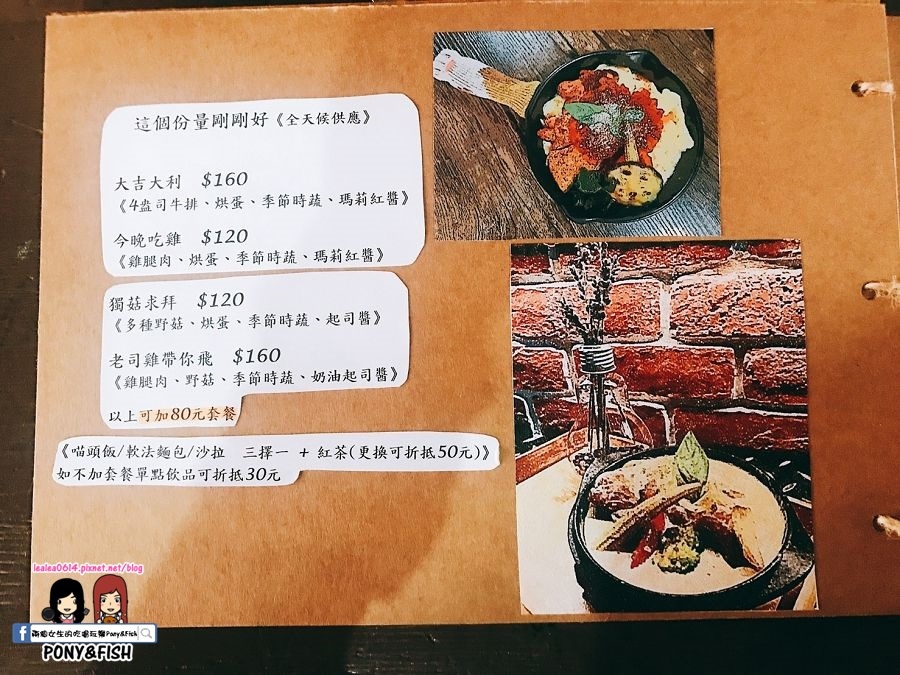 這個份量剛剛好《全天候供應》
大吉大利 $160
《4盎司牛排、烘蛋、季節時蔬、瑪莉紅醬》
今晚吃雞 $120
《雞腿肉、烘蛋、季節時蔬、瑪莉紅醬》
獨菇求拜 $120
《多種野菇、烘蛋、季節時蔬、起司醬》
老司雞帶你飛 $160
《雞腿肉、野菇、季節時蔬、奶油起司醬》
以上可加80元套餐
《喵頭飯/軟法麵包/沙拉 三擇一 + 紅茶(更換可折抵50元)》
如不加套餐單點飲品可折抵30元
lealea0614.pixnet.net/blog
兩個女生的吃喝玩樂Pony&Fish
PONY&FISH